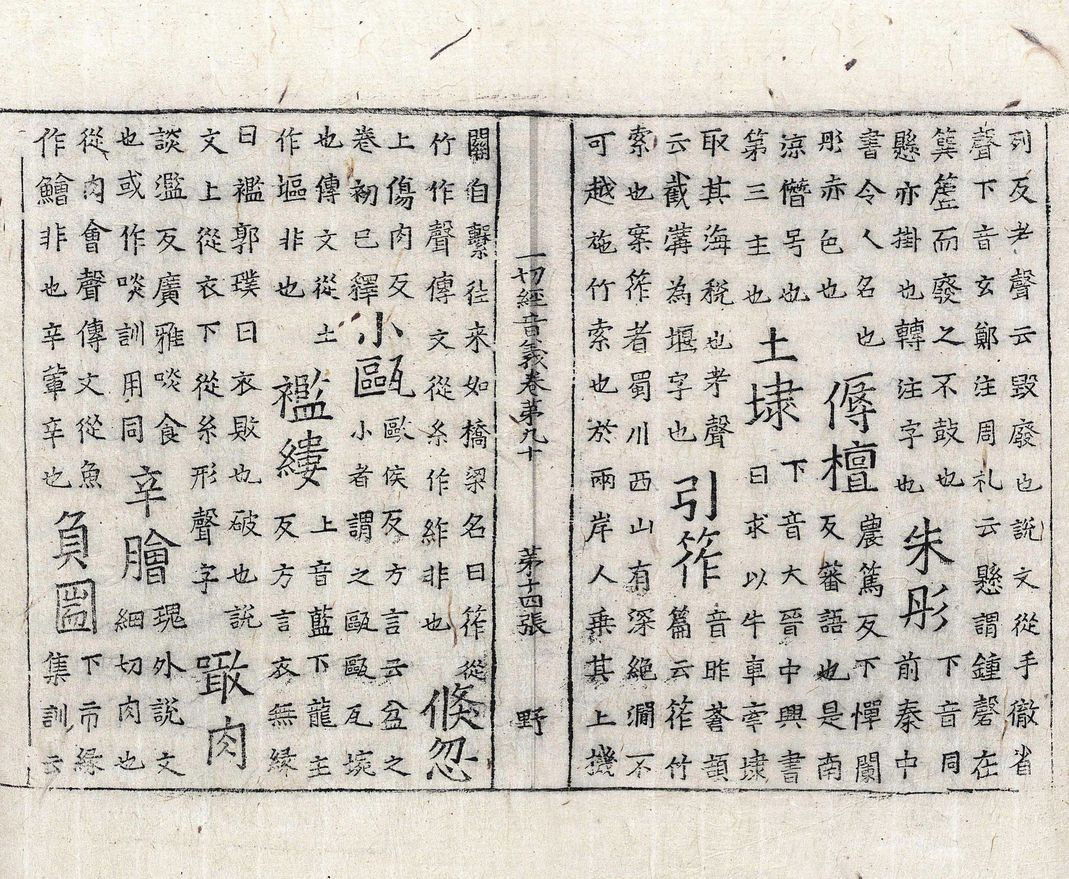 列反考聲云毀廢也説文從手徹省
聲下音玄鄭注周礼云懸謂鍾磬在
簨簴而廢之不鼓也
懸亦掛也轉注字也
朱彤
下音同
前秦中
書令人名也
彤赤色也
傉檀
農篤反下憚闌
反蕃語也是南
涼僭号也
第三主也
土埭
下音大晉中興書
曰求以牛車牽埭
取其海税也考聲
云截溝為堰字也
引筰
音昨蒼頡
篇云筰竹
索也案筰者蜀川西山有深絶澗不
可越施竹索也於兩岸人乗其上機
一切經音義卷第九十 第十四張 野
關自繫往来如橋梁名曰筰從
竹作聲傳文從糸作䋏非也
倏忽
上傷肉反
卷初已釋
小甌
歐侯反方言云盆之
小者謂之甌甌瓦埦
也傳文從土
作塸非也
襤縷
上音藍下龍主
反方言衣無縁
曰襤郭璞曰衣敗也破也説
文上從衣下從糸形聲字
噉肉
談濫反廣雅啖食
也或作啖訓用同
辛膾
瑰外説文
細切肉也
從肉會聲傳文從魚
作鱠非也辛葷辛也
負圌
下市縁
集訓云